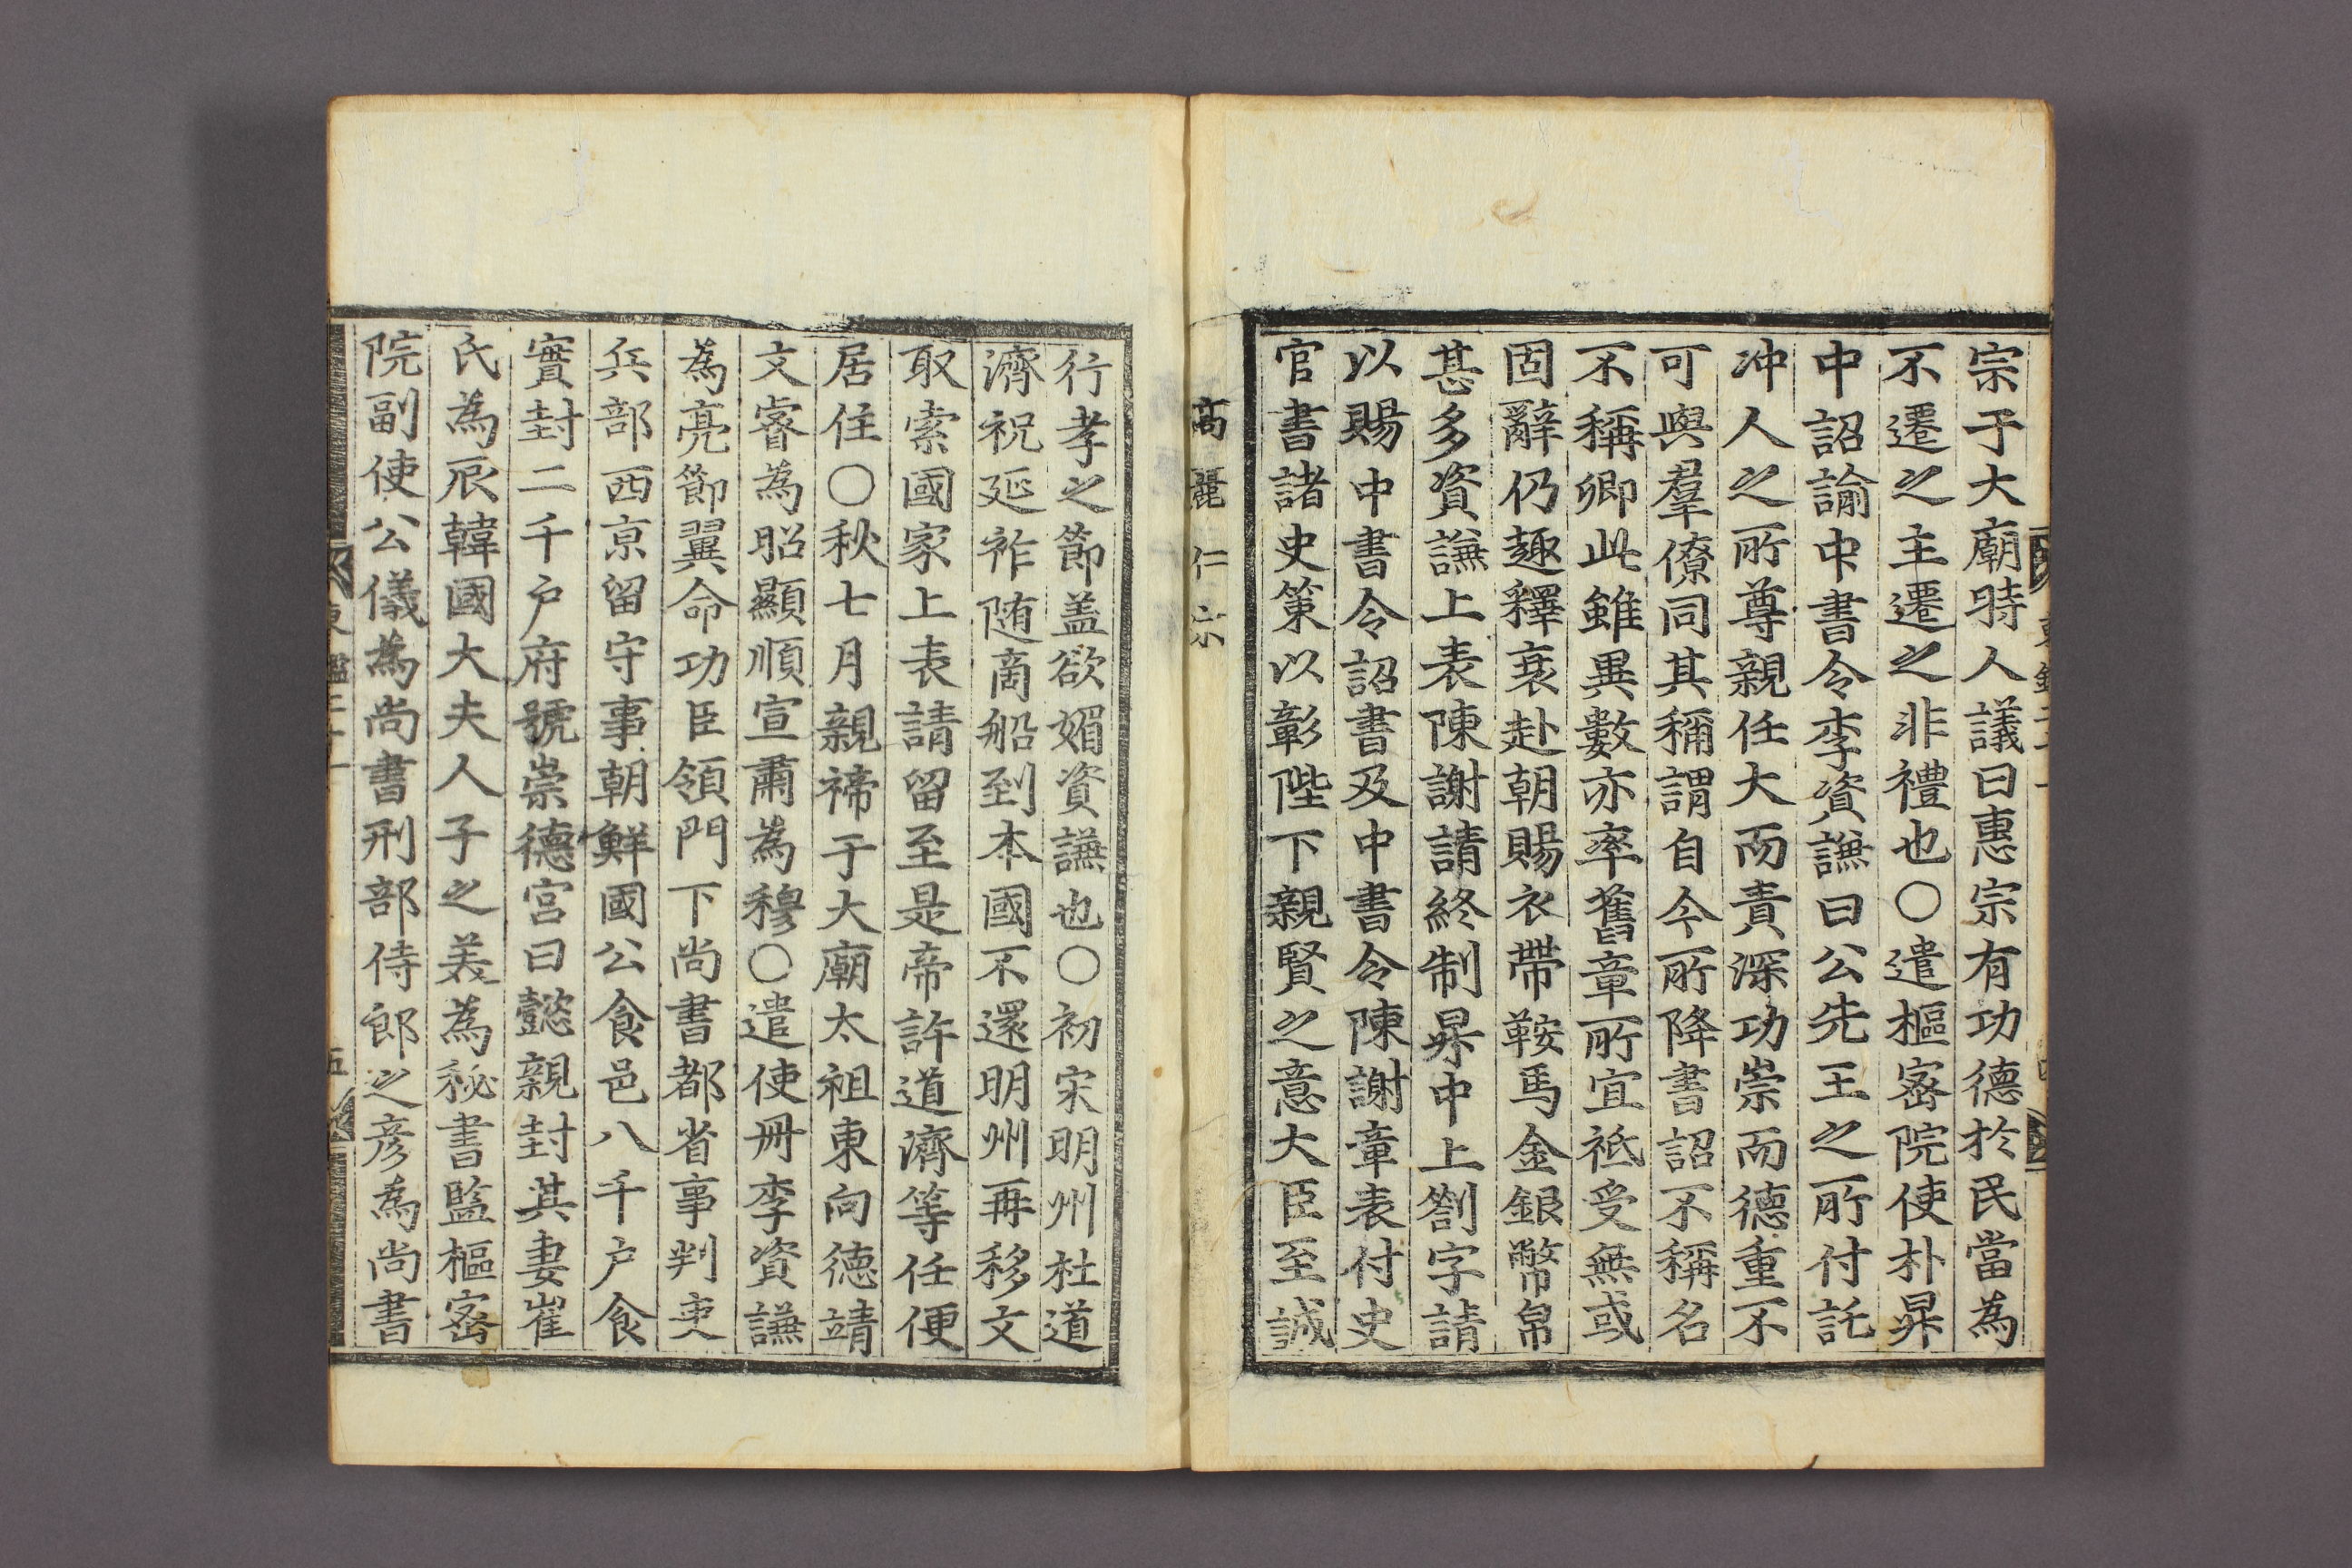 宗于大廟時人議曰惠宗有功德於民當為
不遷之主遷之非禮也○遣樞密院使朴昇
中詔諭中書令李資謙曰公先王之所付託
冲人之所尊親任大而責深功崇而德重不
可與羣僚同其稱謂自今所降書詔不稱名
不稱卿此雖異數亦率舊章所宜祗受無或
固辭仍趣釋衰赴朝賜衣帶鞍馬金銀幣帛
甚多資謙上表陳謝請終制昇中上劄字請
以賜中書令詔書及中書令陳謝章表付史
官書諸史策以彰陛下親賢之意大臣至誠
高麗仁宗
行孝之節盖欲媚資謙也○初宋明州杜道
濟祝延祚随商船到本國不還明州再移文
取索國家上表請留至是帝許道濟等任便
居住○秋七月親禘于大廟太祖東向德靖
文睿為昭顯順宣肅為穆○遣使冊李資謙
為亮節翼命功臣領門下尚書都省事判吏
兵部西京留守事朝鮮國公食邑八千户食
實封二千户府號崇德宫曰懿親封其妻崔
氏為辰韓國大夫人子之美為秘書監樞密
院副使公儀為尚書刑部侍郎之彦為尚書